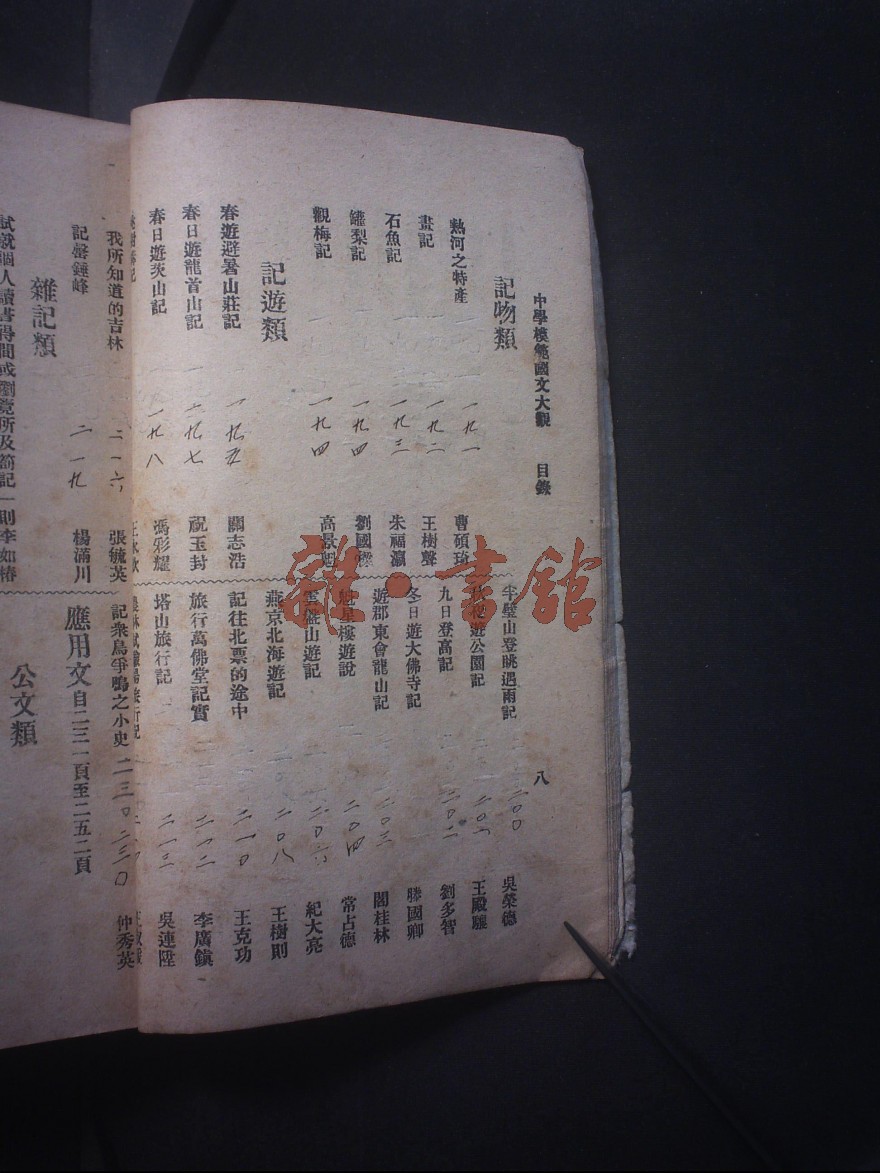 中學模範國文大觀 目錄 八
記物類
熱河之特產 一九一 曹碩琦
畫記 一九二 王樹聲
石魚記 一九三 朱福瀛
鑵梨記 一九四 劉國
觀梅記 一九四 高景
記遊類
春遊避暑山莊記 一九五 關志浩
春日遊龍首山記 一九七 祝玉封
春日遊炎山記 一九八 馮彩耀
半璧山登眺遇雨記 二〇〇 吳榮德
遊公園記 二〇一 王殿
九日登高記 二〇二 劉多智
冬日遊大佛寺記 滕國卿
遊郡東會龍山記 二〇三 閻桂林
魁星樓遊說 二〇四 常占德
山遊記 二〇六 紀大亮
燕京北海遊記 二〇八 王樹則
記往北票的途中 二一〇 王克功
旅行萬佛堂記實 二一二 李廣鎮
塔山旅行記 二一三 吳連陞
我所知道的吉林 二一六 張毓英
記磬錘峰 二一九 楊滿川
雜記類
試就個人讀書得間或瀏覽所及箚記一則 李如椿
記衆鳥爭鳴之小史 二三〇 二三〇 仲秀英
應用文 自二三一頁至二五二頁
公文類
雜·書館